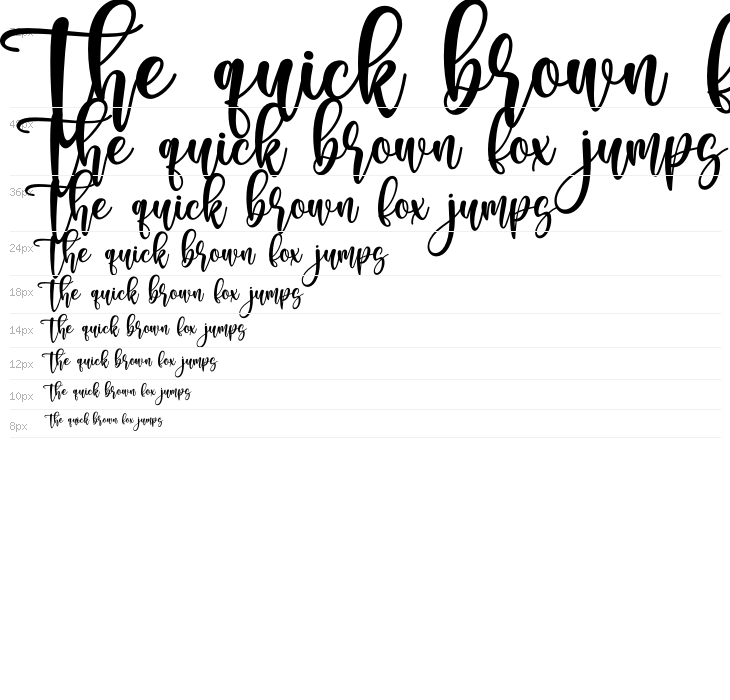 the quick brown
48px the quick brown fox jumps
36px the quick brown fox jumps
24px the quick brown fox jumps
18px the quick brown fox jumps
14px the quick brown fox jumps
12px the quick brown fox jumps
10px the quick brown fox jumps
8px the quick brown fox jumps